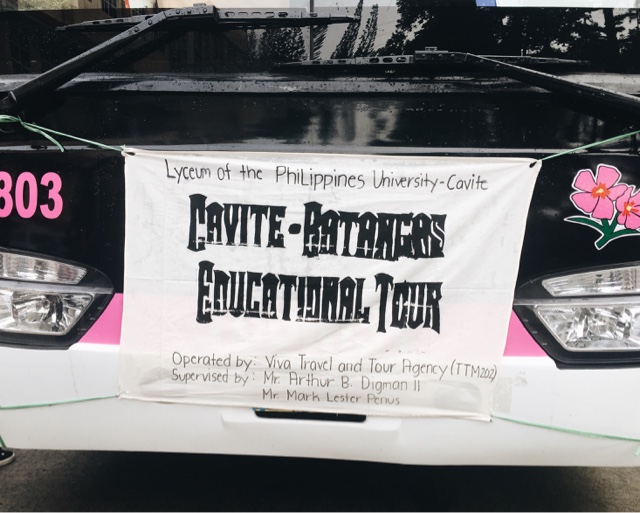 803
Lyceum of the Philippines University-Cavite
CAVITE-BATANGAS
EDUCATIONAL TOUR
Operated by: Viva Travel and Tour Agency (TTM202)
Supervised by: Mr. Arthur B. Digman II
Mr. Mark Lester Penus